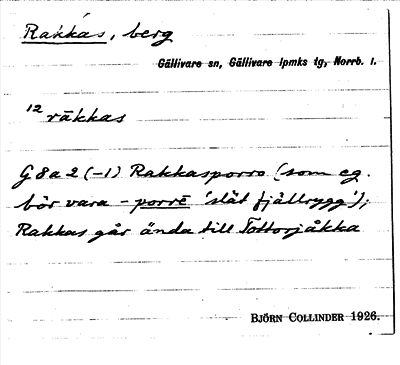 Rakkas, berg
Gällivare sn, Gällivare lpmks tg, Norrb. l.
12 räkkas
G 8 a 2 (-1) Rakkasporro (som eg.
bör vara -porrē 'slät fjällrygg');
Rakkas går ända till Tottorjåkka
BJÖRN COLLINDER 1926.